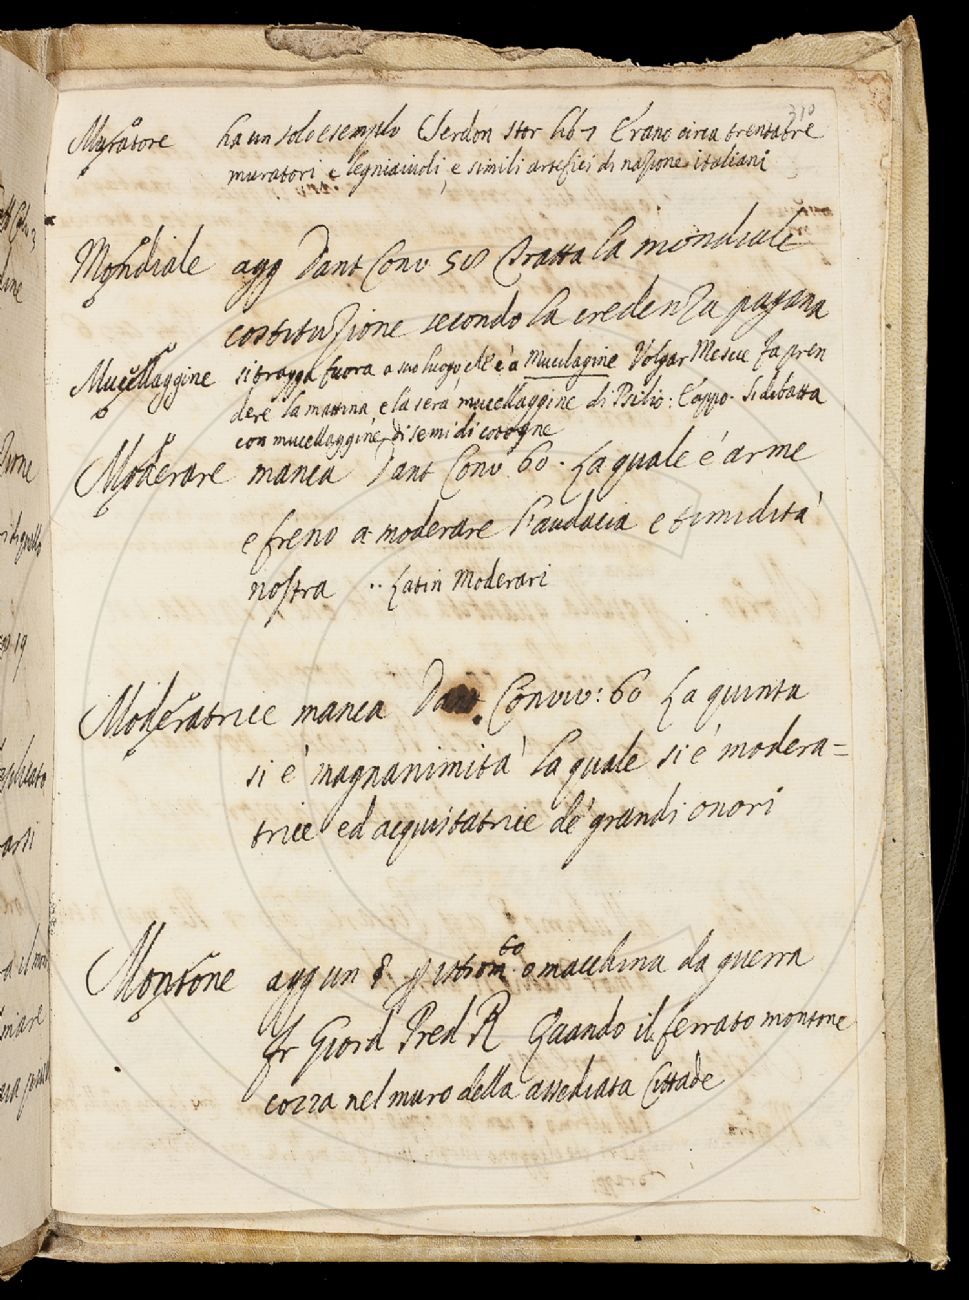 310
Muratore ha un solo esempio Serdon stor lib 7 Erano circa trentatre
muratori e legniaiuoli, e simili artefici di nazione italiani
Mondiale agg Dant Conv 58 Tratta la mondiale
costituzione secondo la credenza pagana
Mucellaggine si tragga fuora a suo luogo ed è a Mucilagine Volgar Mesue Fa pren
dere la mattina, e la sera mucellaggine di Psilio: Cappo. Si dibatta
con mucellaggine di semi di cotogne
Moderare manca Dant Conv 60. La quale é arme
e freno a moderare l'audacia e timidità
nostra .. Latin Moderari
Moderatrice manca Dant Conviv: 60 La quinta
si é magnanimità la quale si é modera=
trice ed acquistatrice de' grandi onori
Montone agg un § p istrom.to o macchina da guerra
fr Giord Pred R Quando il ferrato montone
cozza nel muro della assediata Cittade